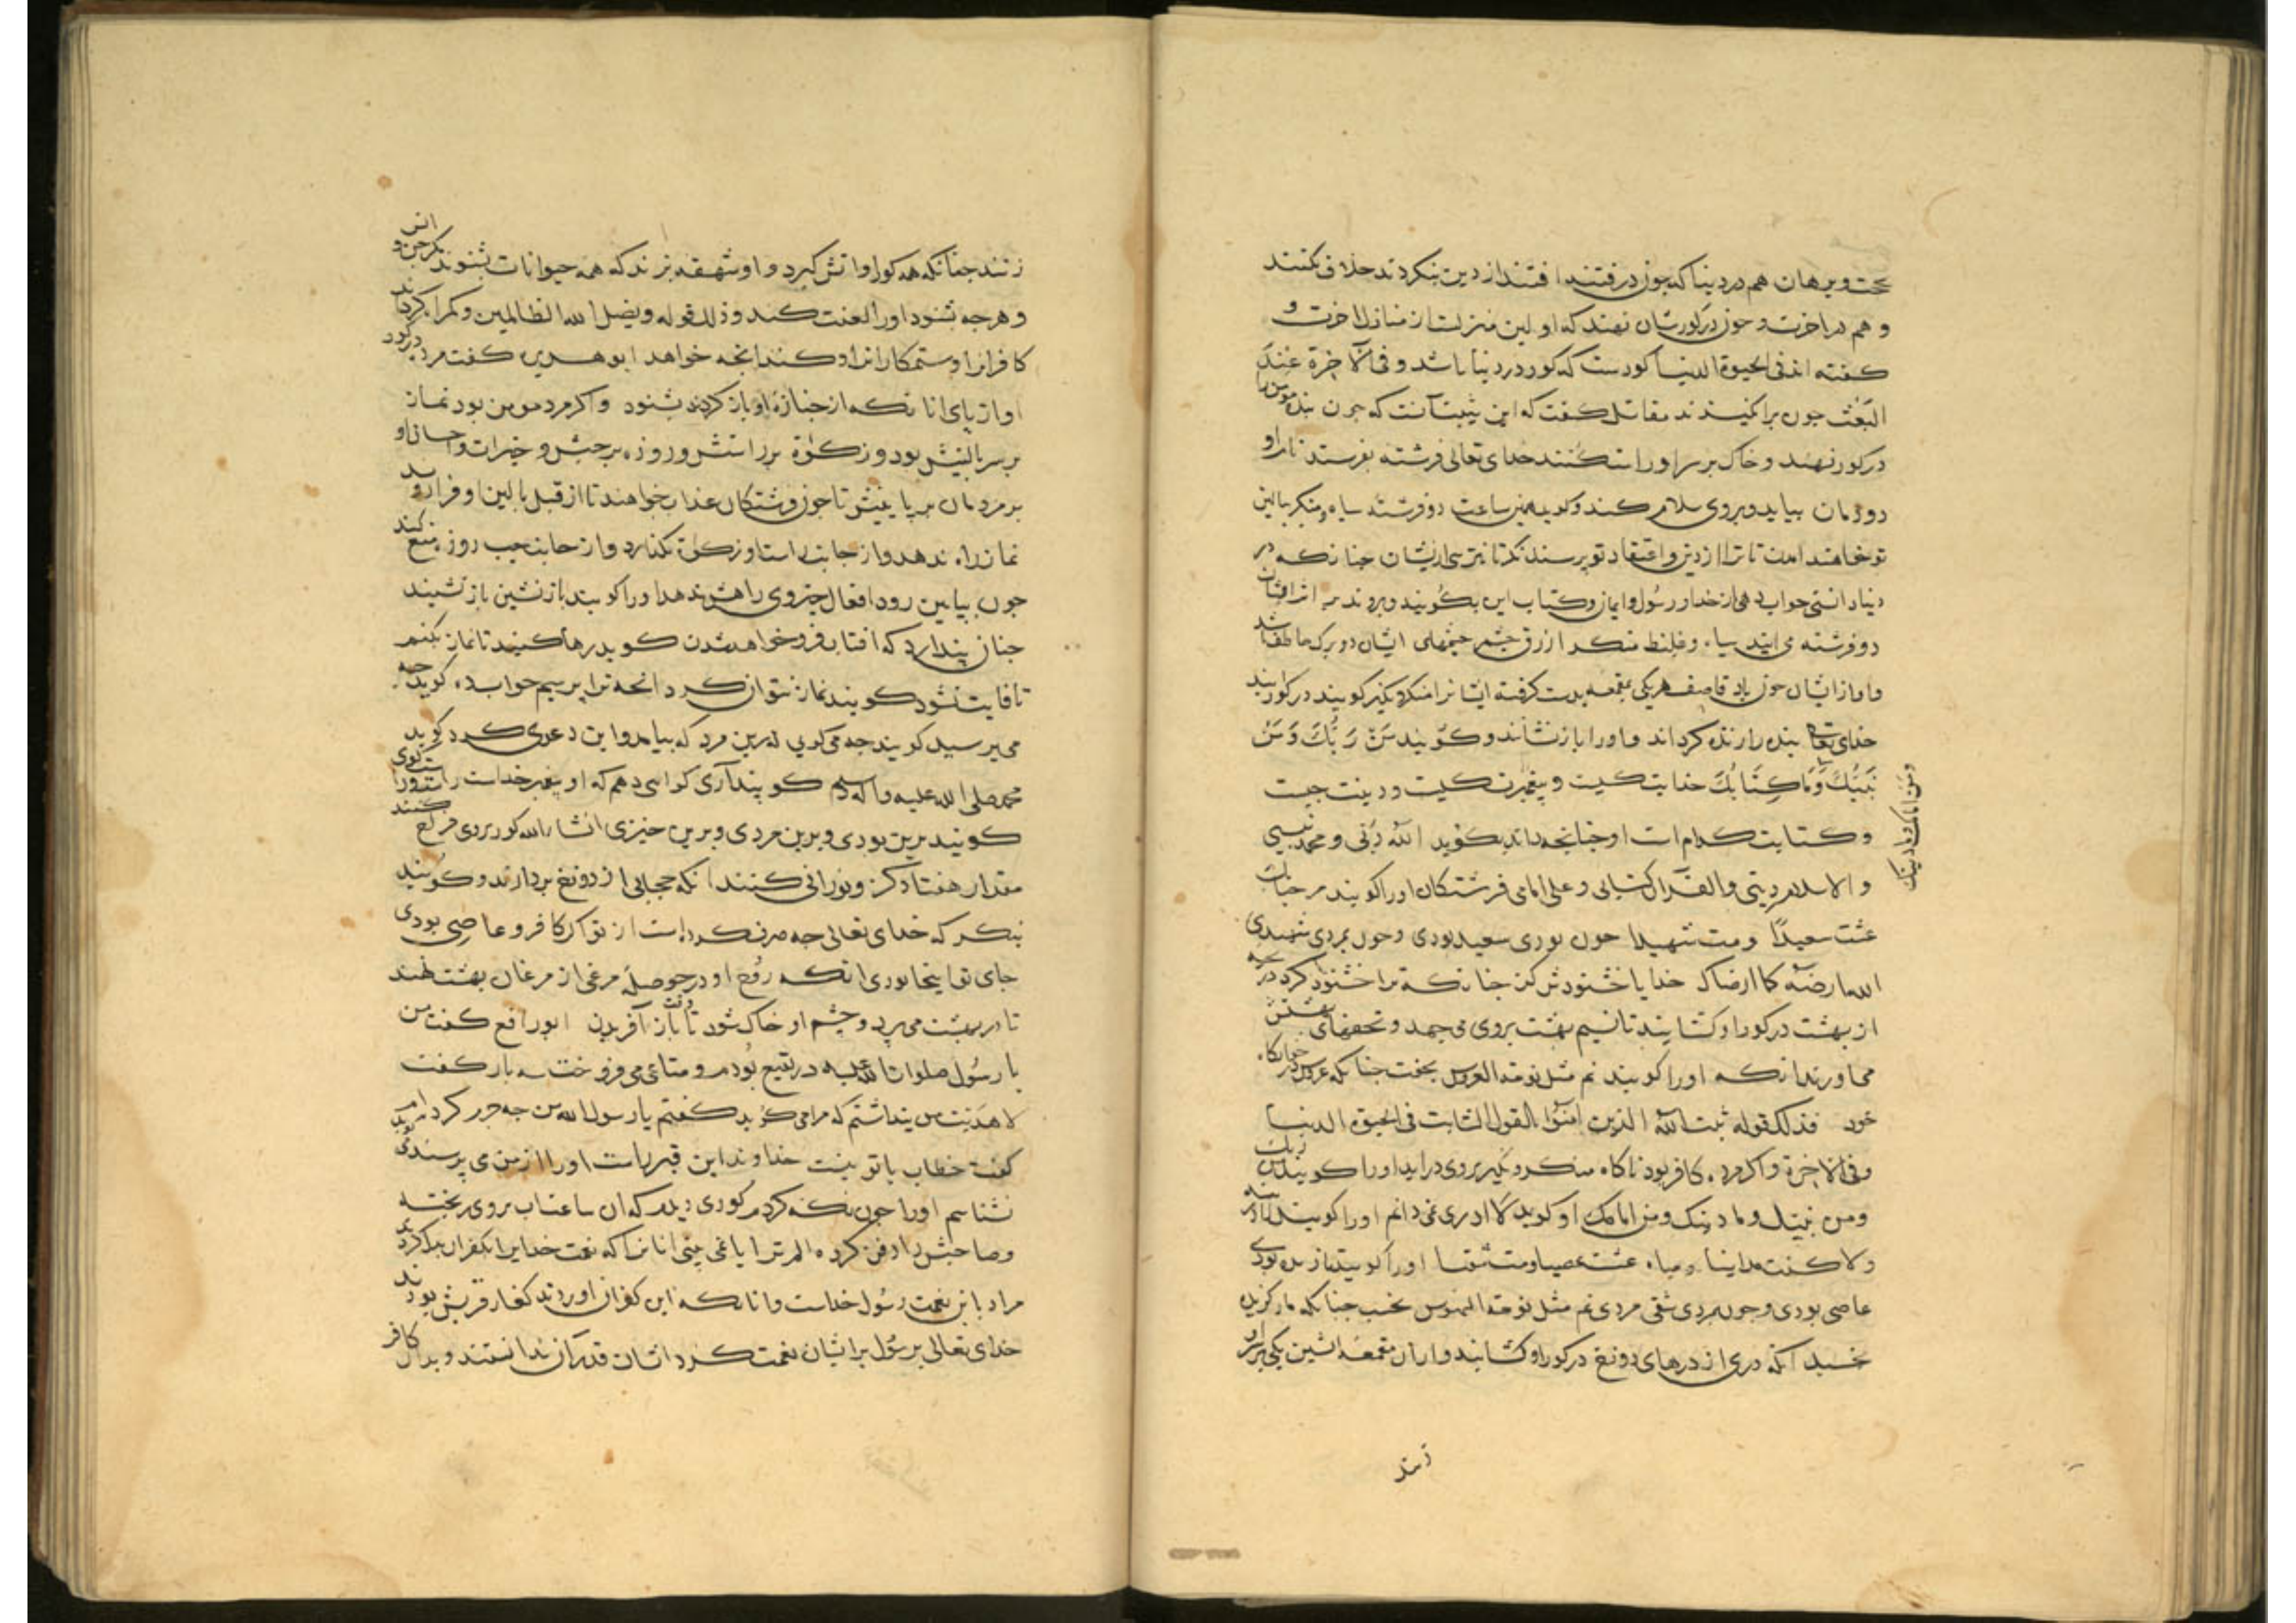 حجت و برهان هم در دنیا که چون در فتنه افتند از دین بنکردند خلاف نکنند
و هم در اخرت و چون در کورشان نهند که اولین منزلت از منازل اخرت و
کفته اند فی الحیوة الدنیا کورست که کور در دنیا باشد و فی الآخرة عند
البعث چون برانکیزند مقاتل کفت که این تثبیت آنست که چون بنده مومن را
در کور نهند و خاک بر سر او راست کنند خدای تعالی فرشته بفرستد تا بر او
دو زمان بیاید و بر وی سلام کند و کوید همین ساعت دو فرشته سیاه منکر بالین
تو خواهند امدن تا ترا از دین و اعتقاد تو پرسند نکر تا نترسی از یشان چنانکه در
دنیا دانستی جواب دهی از خدا و رسول و ایمان و کتاب این بکویند و بروند بر اثر ایشان
دو فرشته می ایند سیاه و غلیظ منکر ازرق چشم چشمهای ایشان دو برق خاطف باشد
و اواز ایشان چون باد قاصف هر یکی مقمعه بدست کرفته ایشانرا منکر و نکیر کویند در کور ایند
خدای تعالی بنده را زنده کرداند و او را باز نشانند و کویند من رَبُّكَ وَمَنْ
نَبِيُّكَ وَمَا كِتَابُكَ خدایت کیست و پیغمبرت کیست و دینت چیست
ومن امامک وما دینک
و کتابت کدام است او چنانچه داند بکوید الله ربّی و محمد نبیی
و الاسلام دینی و القرآن کتابی و علی امامی فرشتکان او را کویند مرحبا بک
عشت سعیدًا ومت شهیدا چون بودی سعید بودی و چون بمردی شهیدی
اللهم ارضه کما ارضاک خدایا خشنودش کن چنانکه ترا خشنود کرد دریچه
از بهشت در کور او کشایند تا نسیم بهشت بروی می جهد و تحفهای بهشتش
می اورند انکه او را کویند نم مثل نومة العروس بخفت چنانکه عروس در خوابکاه
خود فذلک قوله یثبت الله الذین آمنوا بالقول الثابت فی الحیوة الدنیا
و فی الاخرة و اکر مرده کافر بود ناکاه منکر و نکیر بروی دراید او را کویند من ربک
ومن نبیک وما دینک ومن امامک او کوید لا ادری نمی دانم او را کویند
عشت عصیا ومت شقیا او را کویند بودی
عاصی بودی و چون بمردی شقی مردی نم مثل نومة المنهوس بخسب چنانکه مار کزیده
بخسبد انکه دری از درهای دوزخ در کور او کشایند و از ان مقمعه اتشین یکی بر سر او
زنند
زنند چنانکه همه کور او اتش کیرد و او شهقه بزند که همه حیوانات بشنوند مکر جن و انس
و هر چه شنود او را لعنت کند و ذلک قوله ویضل الله الظالمین و کمراه کرداند
کافرانرا و ستمکارانرا و کند انچه خواهد ابو هریره کفت مرده در کور
اواز پای انانکه از جنازه او باز کردند بشنود و اکر مرد مومن بود نماز
بر سر بالینش بود و زکوة بر راستش و روزه بر چپش و خیرات و احسان او
بر مردمان بر پایینش تا چون فرشتکان عذاب خواهند تا از قبل بالین او فراز روند
نماز راه ندهد و از جانب راست او زکوة نکذارد و از جانب چپ روزه منع کند
چون بپایین رود افعال خیر وی را هش ندهد او را کویند باز نشین باز نشیند
چنان پندارد که افتاب فرو خواهد شدن کوید رها کنید تا نماز بکنم
تا فایت نشود کویند نماز نتوان کرد انچه ترا پرسیم جواب ده کوید چه
می پرسید کویند چه می کویی درین مرد که بیامد و این دعوی کرد کوید
محمد صلی الله علیه و اله و سلم کویند آری کواهی دهم که او پیغمبر خداست راست کوی
کویند برین بودی و برین مردی و برین خیزی انشاء الله کور بروی فراخ کنند
مقدار هفتاد کز و نورانی کنند انکه حجابی از دوزخ بردارند و کویند
بنکر که خدای تعالی چه صرف کرد است از تو اکر کافر و عاصی بودی
جای تو اینجا بودی انکه روح او در حوصله مرغی از مرغان بهشت نهند
تا در بهشت می پرد و جسم او خاک شود تا وقت باز آفریدن ابو رافع کفت من
با رسول صلوات الله علیه در بقیع بودم و متاعی می فروخت سه بار کفت
لا هدیت من پنداشتم که مرا می کوید کفتم یا رسول الله من چه جرم کرده ام
کفت خطاب با تو نیست خداوند این قبر راست او را از من می پرسند می کوید
نشناسم او را چون نکه کردم کوری دیدم که ان ساعت اب بروی ریخته
و صاحبش را دفن کرده الم تر ایا نمی بینی انانرا که نعمت خدایرا بکفران بدل کردند
مراد باین نعمت رسول خداست و انانکه این کفران اوردند کفار قریش بودند
خدای تعالی برسول بر ایشان نعمت کرد ایشان قدر آن ندانستند و بدان کافر